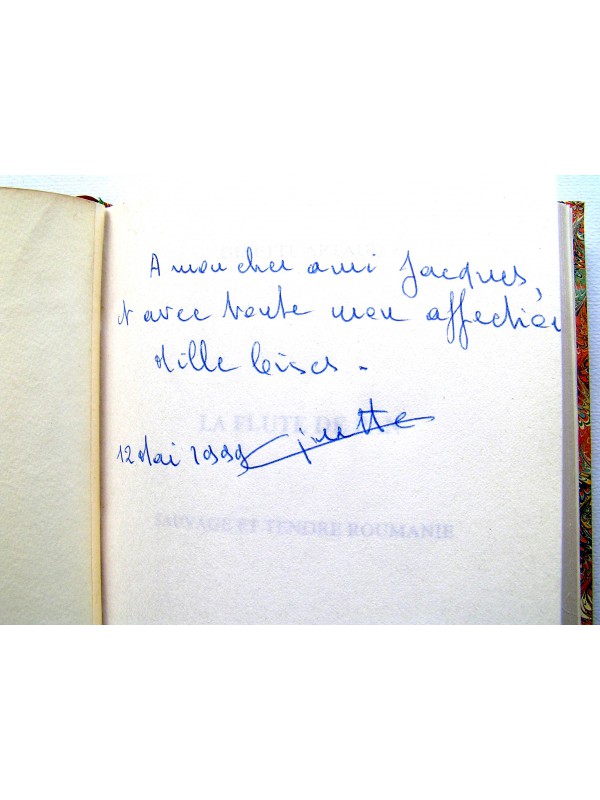 A mon cher ami Jacques,
et avec toute mon affection
Mille baisers.
LA FLUTE DE
12 Mai 1999 Ginette
SAUVAGE ET TENDRE ROUMANIE